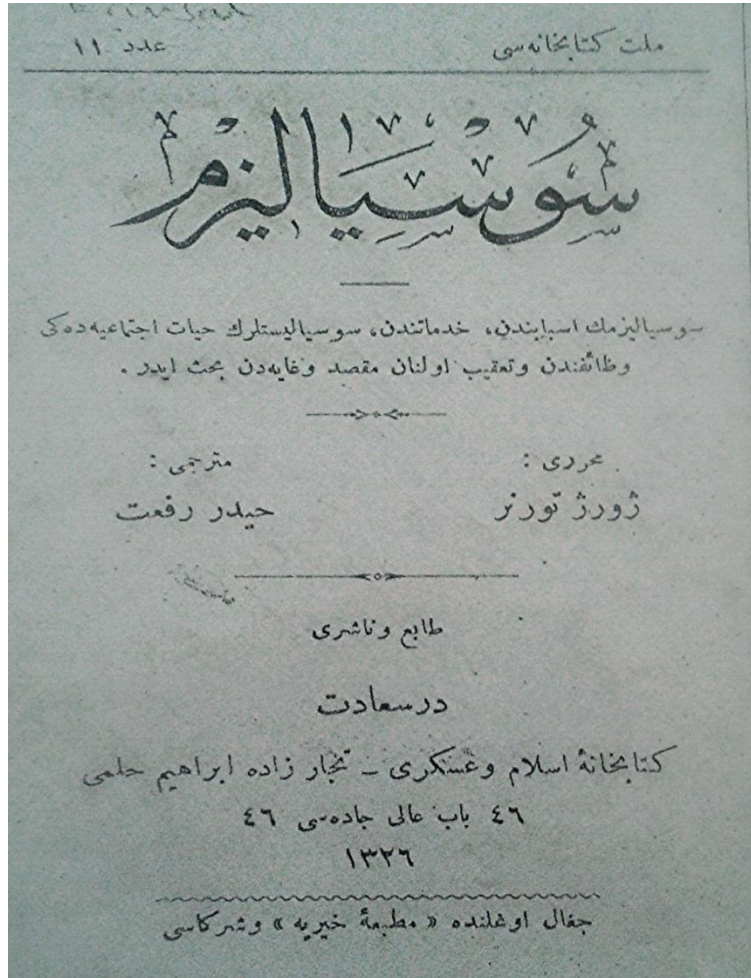 ملت كتابخانه‌سى
عدد ١١
سُوسيَاليزم
سوسياليزمك اسبابندن، خدماتندن، سوسياليستلرك حيات اجتماعيه‌ده‌كى
وظائفندن وتعقيب اولنان مقصد وغايه‌دن بحث ايدر .
محررى :
مترجمى :
ژورژ تورنر
حيدر رفعت
طابع وناشرى
درسعادت
كتابخانهٔ اسلام وعسكرى – تجار زاده ابراهيم حلمى
٤٦ باب عالى جاده‌سى ٤٦
١٣٢٦
جغال اوغلنده « مطبعهٔ خيريه » وشركاسى